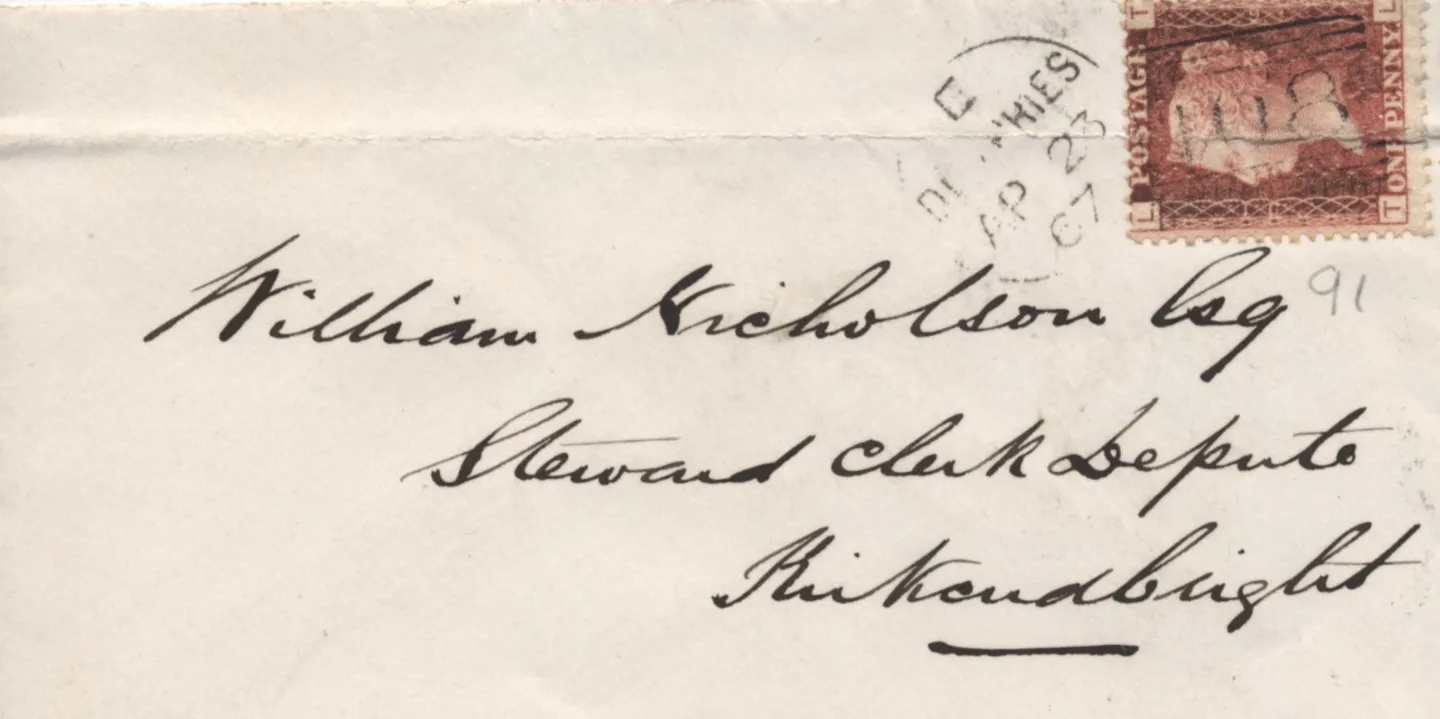 POSTAGE
ONE PENNY
T L
L T
108
D
AP 23
67
William Nicholson Esq
91
Steward Clerk Depute
Kirkcudbright